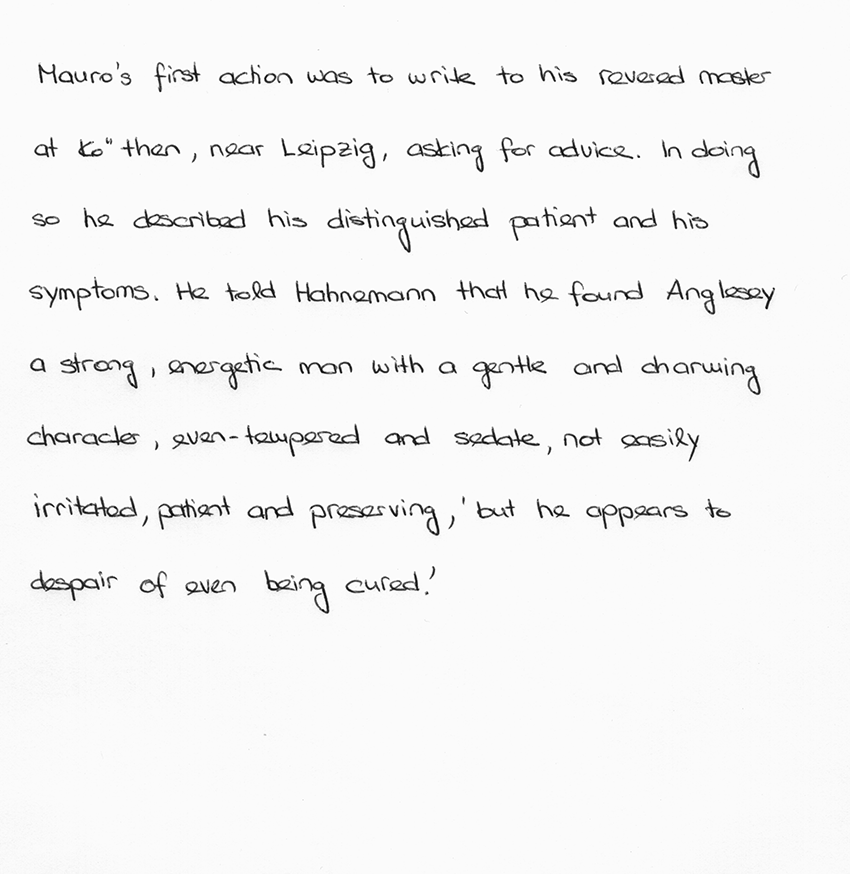 Mauro's first action was to write to his revered master
at Ko" then, near Leipzig, asking for advice. In doing
so he described his distinguished patient and his
symptoms. He told Hahnemann that he found Anglesey
a strong, energetic man with a gentle and charming
character, even-tempered and sedate, not easily
irritated, patient and preserving,' but he appears to
despair of even being cured.'